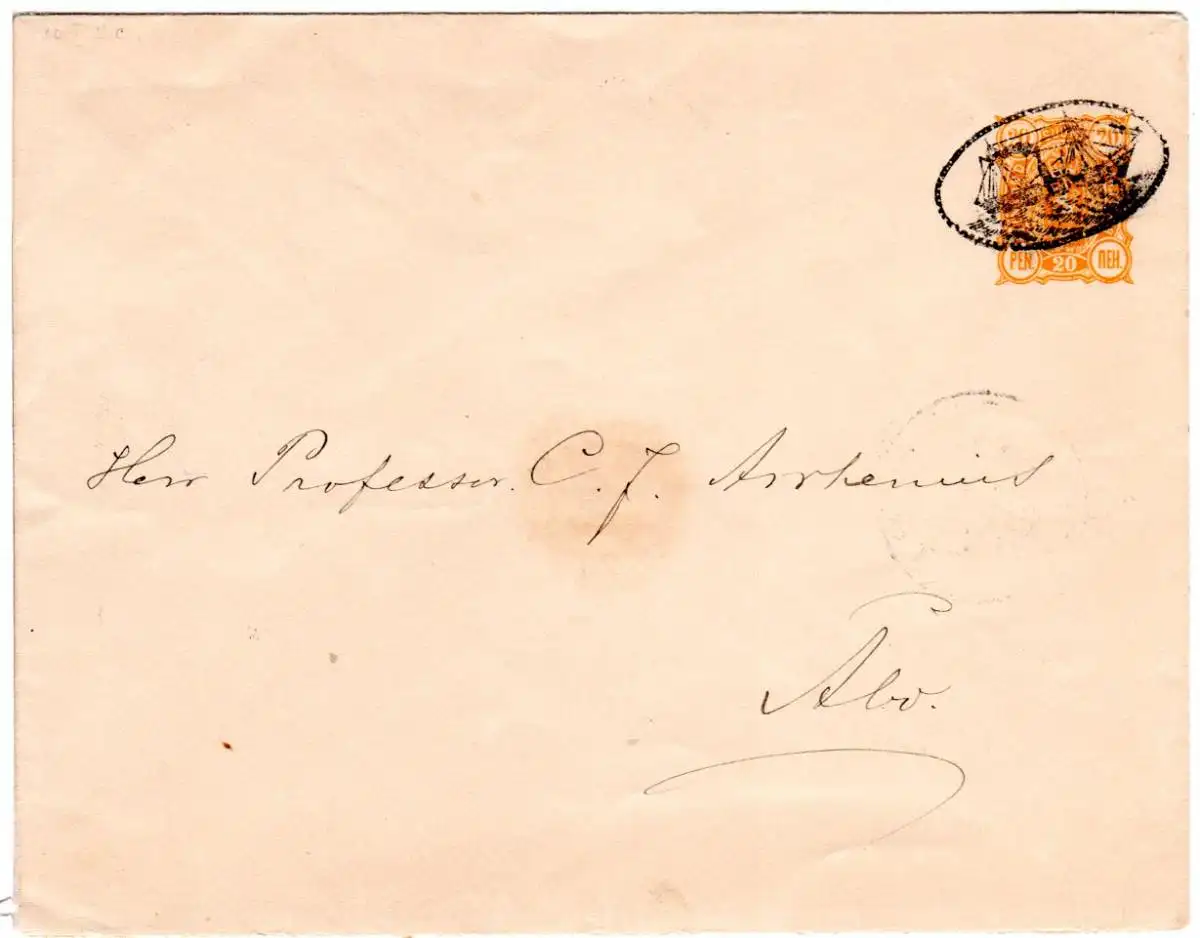 20 20
PEN. 20 ПЕН.
Herr Professor. C. J. Arrhenius
Åbo.